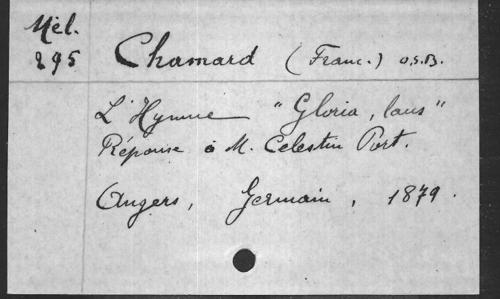 Mél.
295
Chamard (Franc.) O.S.B.
L'Hymne "Gloria, laus"
Réponse à M. Celestin Port.
Angers, Germain, 1879.